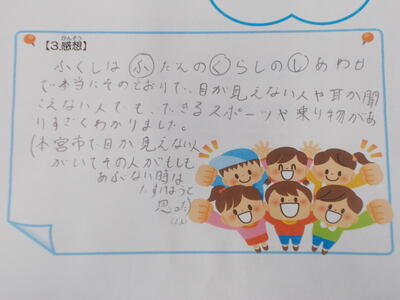 かんそう
【3.感想】
ふくしは ふだんの くらしの しあわせ
で本当にそのとおりで、目が見えない人や耳が聞
こえない人でも、できるスポーツや乗り物があ
りすごくわかりました。
(本宮市で目が見えない人
がいてその人がもしも
あぶない時は
たすけようと
思った)